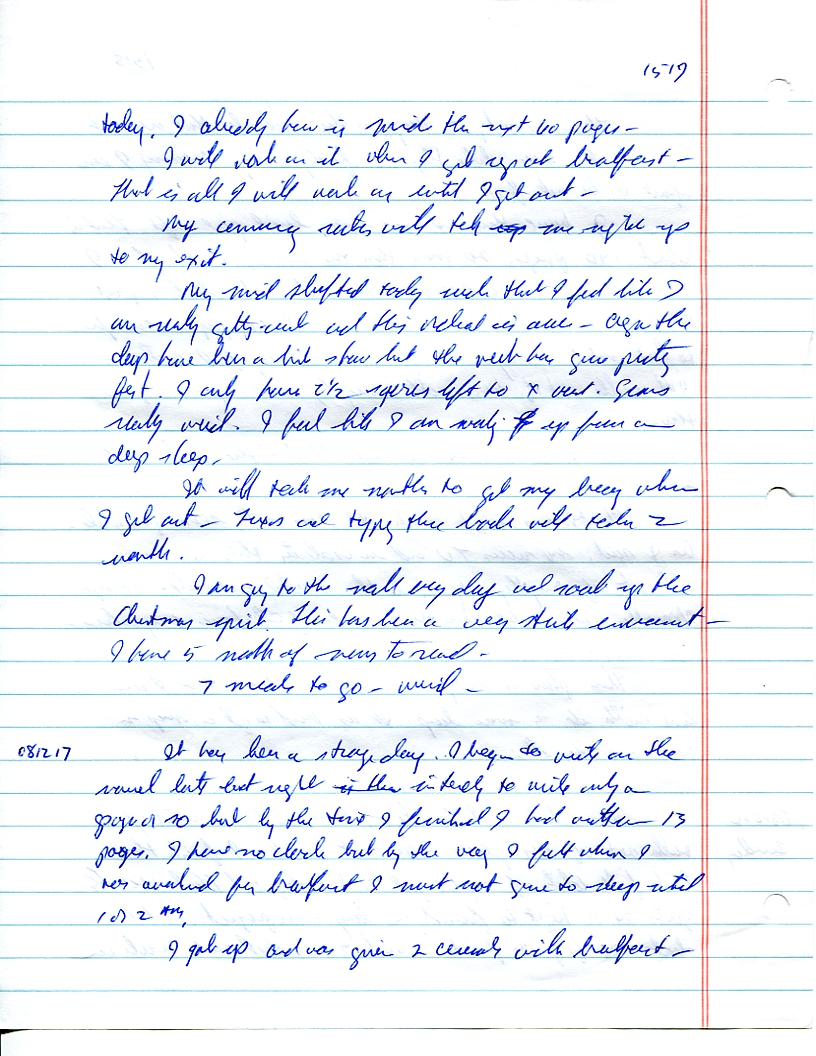 1519
today. I already have in mind the next 60 pages -
I will work on it when I get up at breakfast -
that is all I will work on until I get out -
My coming notes will tell me right up
to my exit.
My mind shifted today such that I feel like I
am really getting out and this ordeal is over - Again the
days have been a bit slow but the week has gone pretty
fast. I only have 2 1/2 squares left to X out. Seems
really weird. I feel like I am waking up from a
deep sleep.
It will take me months to get my when
I get out - and typing these books will take 2
months.
I am going to the mall every day and soak up the
Christmas spirit. This has been a very sterile environment -
I have 5 months of news to read -
7 meals to go - weird -
081217
It has been a strange day. I began to write on the
novel late last night intending to write only a
page or so but by the time I finished I had written 13
pages. I have no clock but by the way I felt when I
was awakened for breakfast I must not gone to sleep until
1 or 2 AM.
I got up and was given 2 cereals with breakfast -